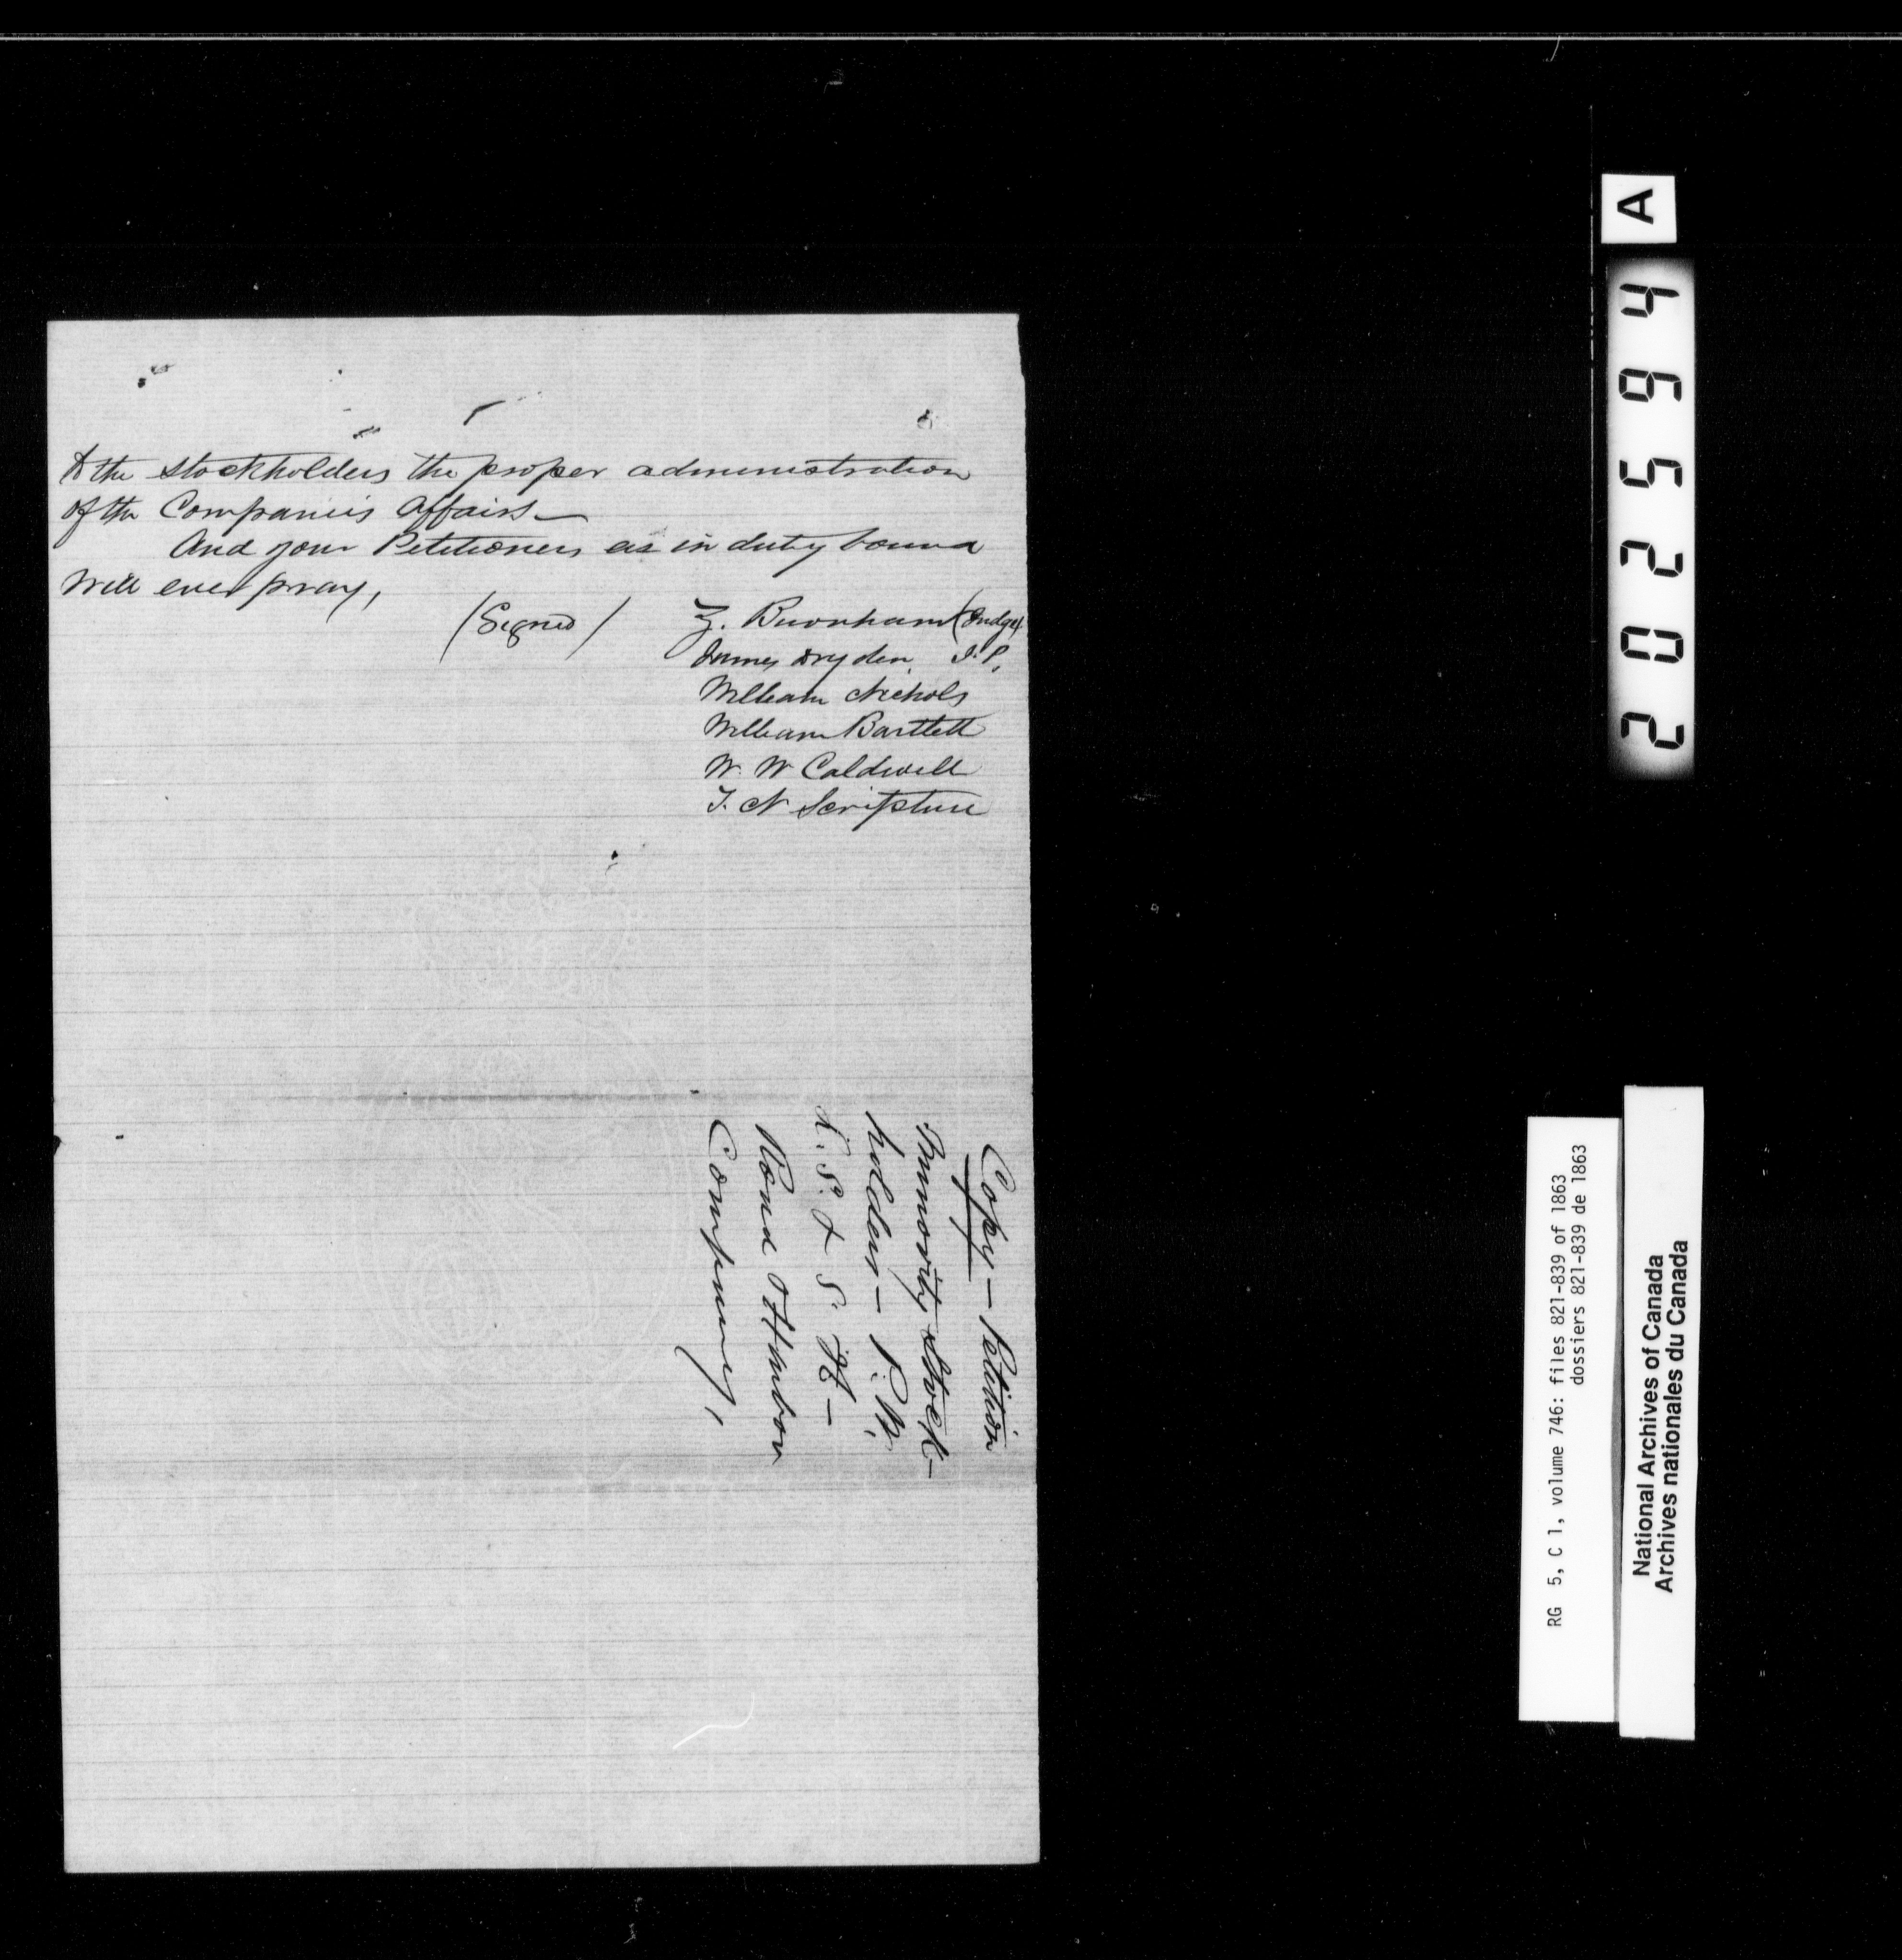 to the stockholders the proper administration
of the Companies Affairs—
And your Petitioners as in duty bound
will ever pray,
(Signed) Z. Burnham (Judge)
James Dryden J.P.
William Nichols
William Bartlett
W. W Caldwell
T. N Scripture
Copy — Petition
Minority Stock-
holders — P. W.
L. S. & S. H —
Road & Harbor
Company,
A
2025594
RG 5, C 1, volume 746: files 821-839 of 1863
dossiers 821-839 de 1863
National Archives of Canada
Archives nationales du Canada